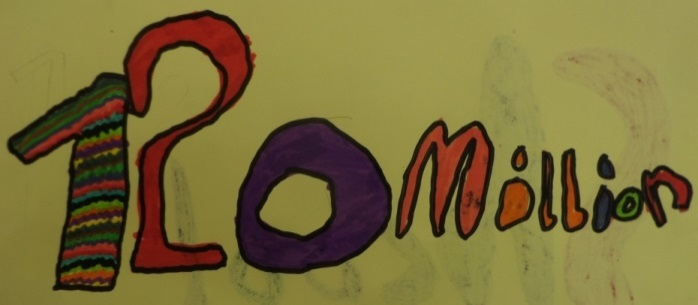 120 million